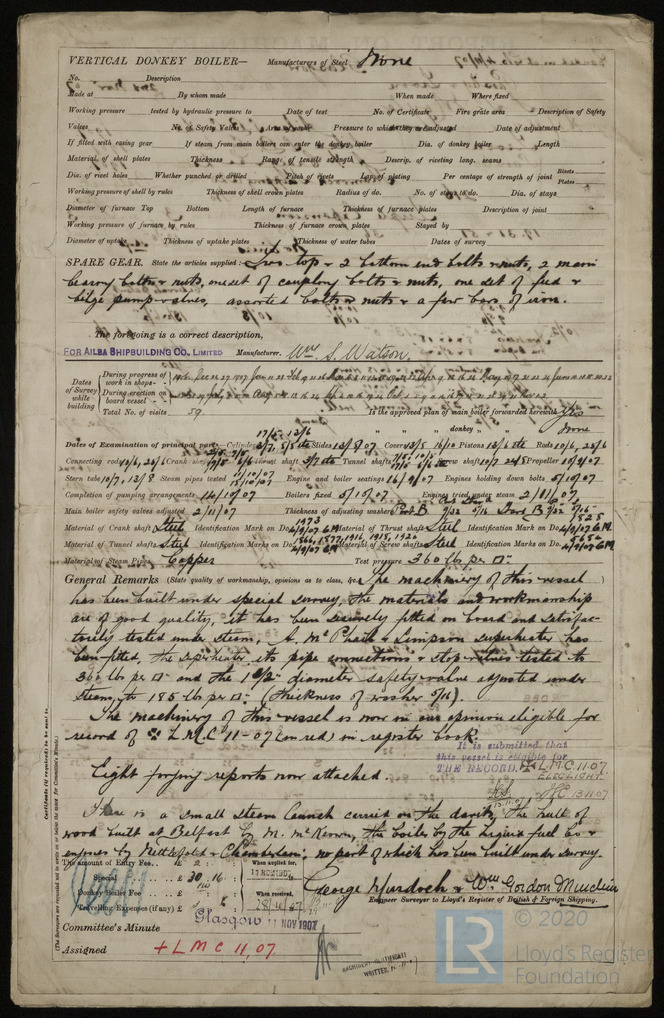 VERTICAL DONKEY BOILER— Manufacturers of Steel None
No. Description
Made at By whom made When made Where fixed
Working pressure tested by hydraulic pressure to Date of test No. of Certificate Fire grate area Description of Safety
Valves No. of Safety Valves Area of each Pressure to which they are adjusted Date of adjustment
If fitted with easing gear If steam from main boilers can enter the donkey boiler Dia. of donkey boiler Length
Material of shell plates Thickness Range of tensile strength Descrip. of riveting long. seams
Dia. of rivet holes Whether punched or drilled Pitch of rivets Lap of plating Per centage of strength of joint Rivets Plates
Working pressure of shell by rules Thickness of shell crown plates Radius of do. No. of stays to do. Dia. of stays
Diameter of furnace Top Bottom Length of furnace Thickness of furnace plates Description of joint
Working pressure of furnace by rules Thickness of furnace crown plates Stayed by
Diameter of uptake Thickness of uptake plates Thickness of water tubes Dates of survey
SPARE GEAR. State the articles supplied:— Two top & 2 bottom end bolts & nuts, 2 main
bearing bolts & nuts, one set of coupling bolts & nuts, one set of feed &
bilge pump valves, assorted bolts & nuts & a few bars of iron.
The foregoing is a correct description,
FOR AILSA SHIPBUILDING CO., LIMITED Manufacturer. Wm S. Watson.
Dates of Survey while building
During progress of work in shops - -
During erection on board vessel - - -
Total No. of visits 59. Is the approved plan of main boiler forwarded herewith Yes
" " " donkey " " " None
Dates of Examination of principal parts— Cylinders Slides 13/8/07 Covers Pistons 13/6 Rods 10/6, 25/6
Connecting rods 10/6, 25/6 Crank shaft Thrust shaft 3/7 Tunnel shafts Screw shaft 10/7 Propeller 10/9/07
Stern tube 10/7, 13/8 Steam pipes tested Engine and boiler seatings 16/9/07 Engines holding down bolts 5/10/07
Completion of pumping arrangements 14/10/07 Boilers fixed 5/10/07 Engines tried under steam 2/11/07
Main boiler safety valves adjusted 2/11/07 Thickness of adjusting washers
Material of Crank shaft Steel Identification Mark on Do. Material of Thrust shaft Steel Identification Mark on Do.
Material of Tunnel shafts Steel Identification Marks on Do. Material of Screw shafts Steel Identification Marks on Do.
Material of Steam Pipes Copper Test pressure 360 lbs per □"
General Remarks (State quality of workmanship, opinions as to class, &c. The machinery of this vessel
has been built under special survey, the materials and workmanship
are of good quality, it has been securely fitted on board and satisfac-
torily tested under steam, A McPhail & Simpson superheater has
been fitted, the superheater its pipe connections & stop valves tested to
360 lbs per □" and the 1½" diameter safety valve adjusted under
steam, to 185 lbs per □". (Thickness of washer 5/16).
The machinery of this vessel is now in our opinion eligible for
record of ✠ L.M.C 11-07 (in red) in register book.
It is submitted that
this vessel is eligible for
THE RECORD. ✠ L M C 11.07
ELEC LIGHT.
13.11.07
Eight forging reports now attached.
There is a small steam launch carried on the davits, the hull of
wood built at Belfast by M. McKeown, the boiler by the Liquid fuel Co &
engines by Nettlefold & Chamberlain, no part of which has been built under survey.
The amount of Entry Fee.. £ 2 : When applied for,
Special .. .. £ 30 . 16 :
Donkey Boiler Fee .. .. £ When received,
Travelling Expenses (if any) £
George Murdoch & Wm Gordon
Engineer Surveyor to Lloyd's Register of British & Foreign Shipping.
Committee's Minute Glasgow 11 NOV 1907
Assigned + L M C 11,07
MACHINERY CERTIFICATE
WRITTEN
Certificate (if required) to be sent to
(The Surveyors are requested not to write on or below the space for Committee's Minute.)
LR
© 2020
Lloyd's Register
Foundation